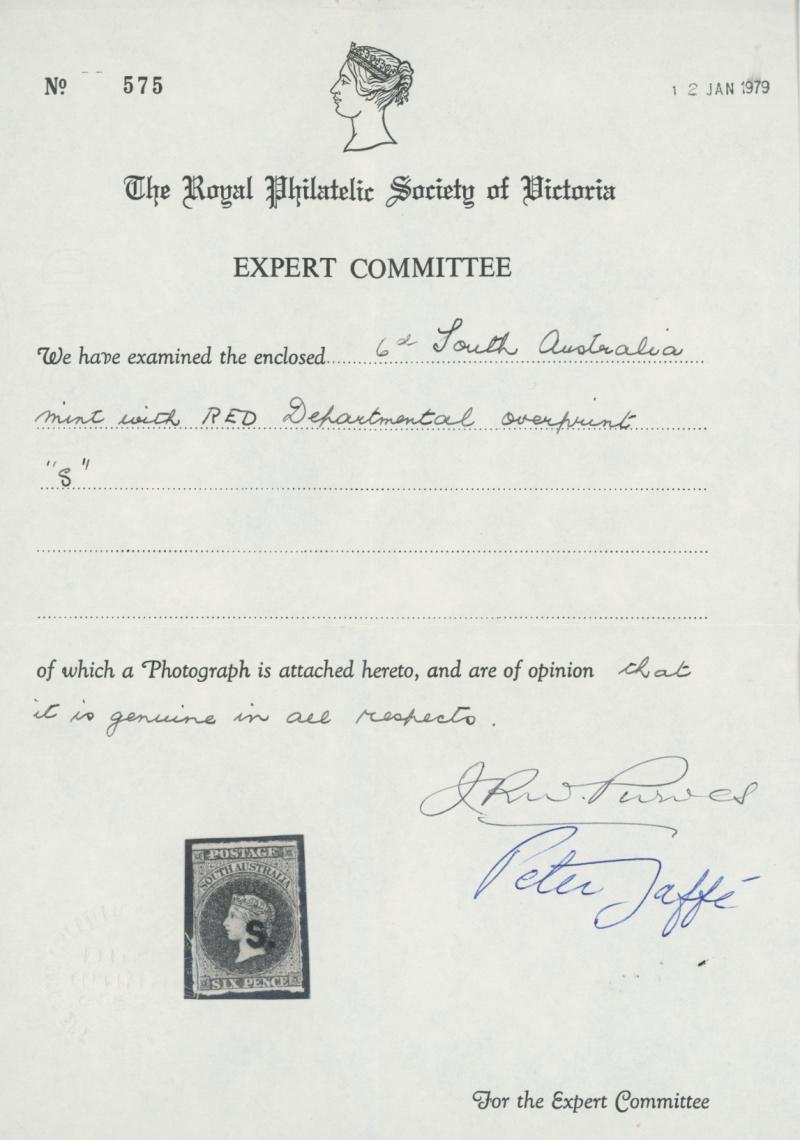 Nº 575
12 JAN 1979
The Royal Philatelic Society of Victoria
EXPERT COMMITTEE
We have examined the enclosed 6d South Australia
mint with RED Departmental overprint
"S"
of which a Photograph is attached hereto, and are of opinion that
it is genuine in all respects.
J R W. Purves
Peter Jaffé
POSTAGE
SOUTH AUSTRALIA
S.
SIX PENCE
For the Expert Committee